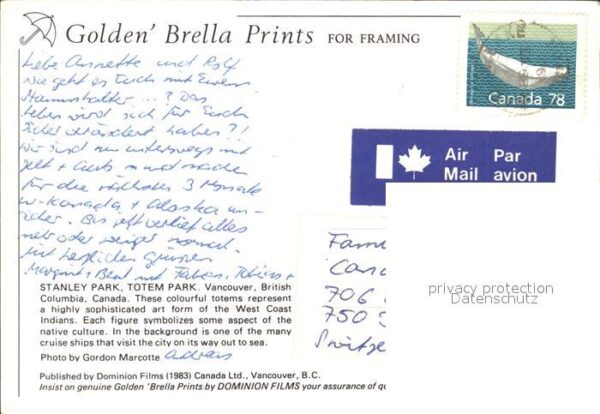 Golden' Brella Prints FOR FRAMING
Canada 78
Liebe Annette und Rolf
wie geht es Euch mit Eurem
Stammhalter ...? Das
Leben wird sich für Euch
sicher verändert haben?!
Wir sind nun unterwegs mit
Zelt + Auto und machen
für die nächsten 3 Monate
W-Kanada + Alaska un-
sicher. Bis jetzt verlief alles
mehr oder weniger normal.
Mit herzlichen Grüssen
Margrit + Beat mit Fabian, Tobias +
Adrian
Air Par
Mail avion
Fam
706
750
privacy protection
Datenschutz
STANLEY PARK, TOTEM PARK. Vancouver, British
Columbia, Canada. These colourful totems represent
a highly sophisticated art form of the West Coast
Indians. Each figure symbolizes some aspect of the
native culture. In the background is one of the many
cruise ships that visit the city on its way out to sea.
Photo by Gordon Marcotte
Published by Dominion Films (1983) Canada Ltd., Vancouver, B.C.
Insist on genuine Golden 'Brella Prints by DOMINION FILMS your assurance of qu